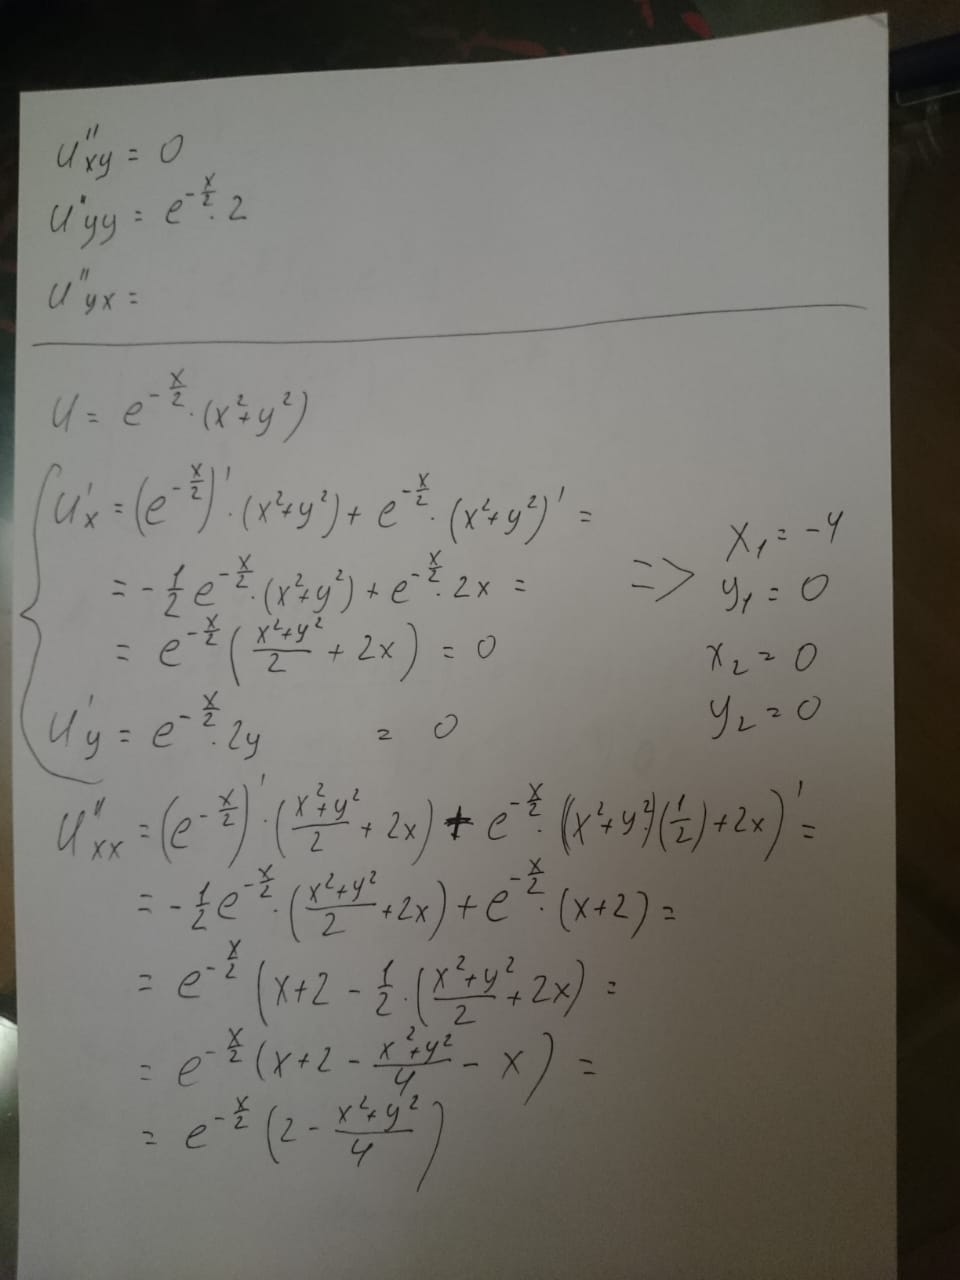 u''xy = 0
u''yy = e^{-x/2} · 2
u''yx =
U = e^{-x/2} · (x²+y²)
u'x = (e^{-x/2})' · (x²+y²) + e^{-x/2} · (x²+y²)' =
= -1/2 e^{-x/2} · (x²+y²) + e^{-x/2} · 2x =
= e^{-x/2} ( (x²+y²)/2 + 2x ) = 0
u'y = e^{-x/2} · 2y = 0
=> x₁ = -4
y₁ = 0
x₂ = 0
y₂ = 0
u''xx = (e^{-x/2})' · ( (x²+y²)/2 + 2x ) + e^{-x/2} · ((x²+y²)(1/2) + 2x)' =
= -1/2 e^{-x/2} · ( (x²+y²)/2 + 2x ) + e^{-x/2} · (x+2) =
= e^{-x/2} (x+2 - 1/2 · ( (x²+y²)/2 + 2x) =
= e^{-x/2} (x+2 - (x²+y²)/4 - x) =
= e^{-x/2} (2 - (x²+y²)/4)